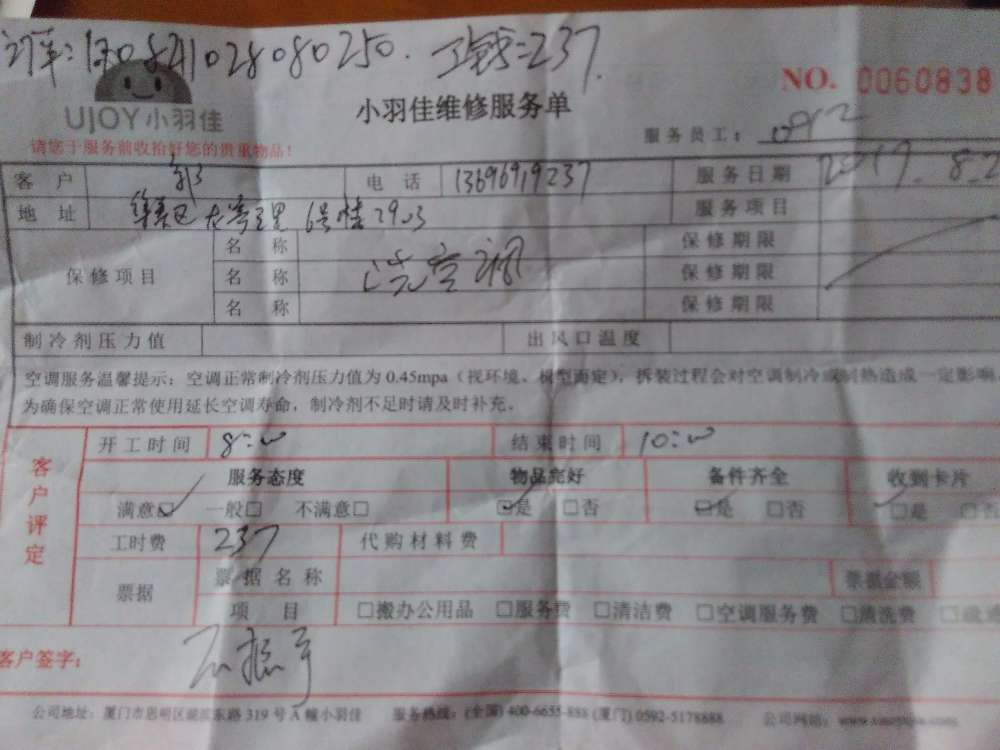 工钱=237.
NO. 0060838
UJOY小羽佳
小羽佳维修服务单
请您于服务前收拾好您的贵重物品!
服务员工: 0912
客户 郭 电话 13696919237 服务日期 2017.8.2
地址 6号楼2903 服务项目
保修项目 名称 洗空调 保修期限
名称 保修期限
名称 保修期限
制冷剂压力值 出风口温度
空调服务温馨提示:空调正常制冷剂压力值为0.45mpa(视环境、机型而定),拆装过程会对空调制冷或制热造成一定影响,
为确保空调正常使用延长空调寿命,制冷剂不足时请及时补充。
客户评定
开工时间 8:00 结束时间 10:00
服务态度 物品完好 备件齐全 收到卡片
满意☑ 一般□ 不满意□ ☑是 □否 ☑是 □否 ☑是 □否
工时费 237 代购材料费
票据 票据名称 票据金额
项目 □搬办公用品 □服务费 □清洁费 □空调服务费 □清洗费
客户签字:
公司地址:厦门市思明区湖滨东路319号A幢小羽佳 服务热线:(全国)400-6655-888 (厦门)0592-5178688 公司网站: